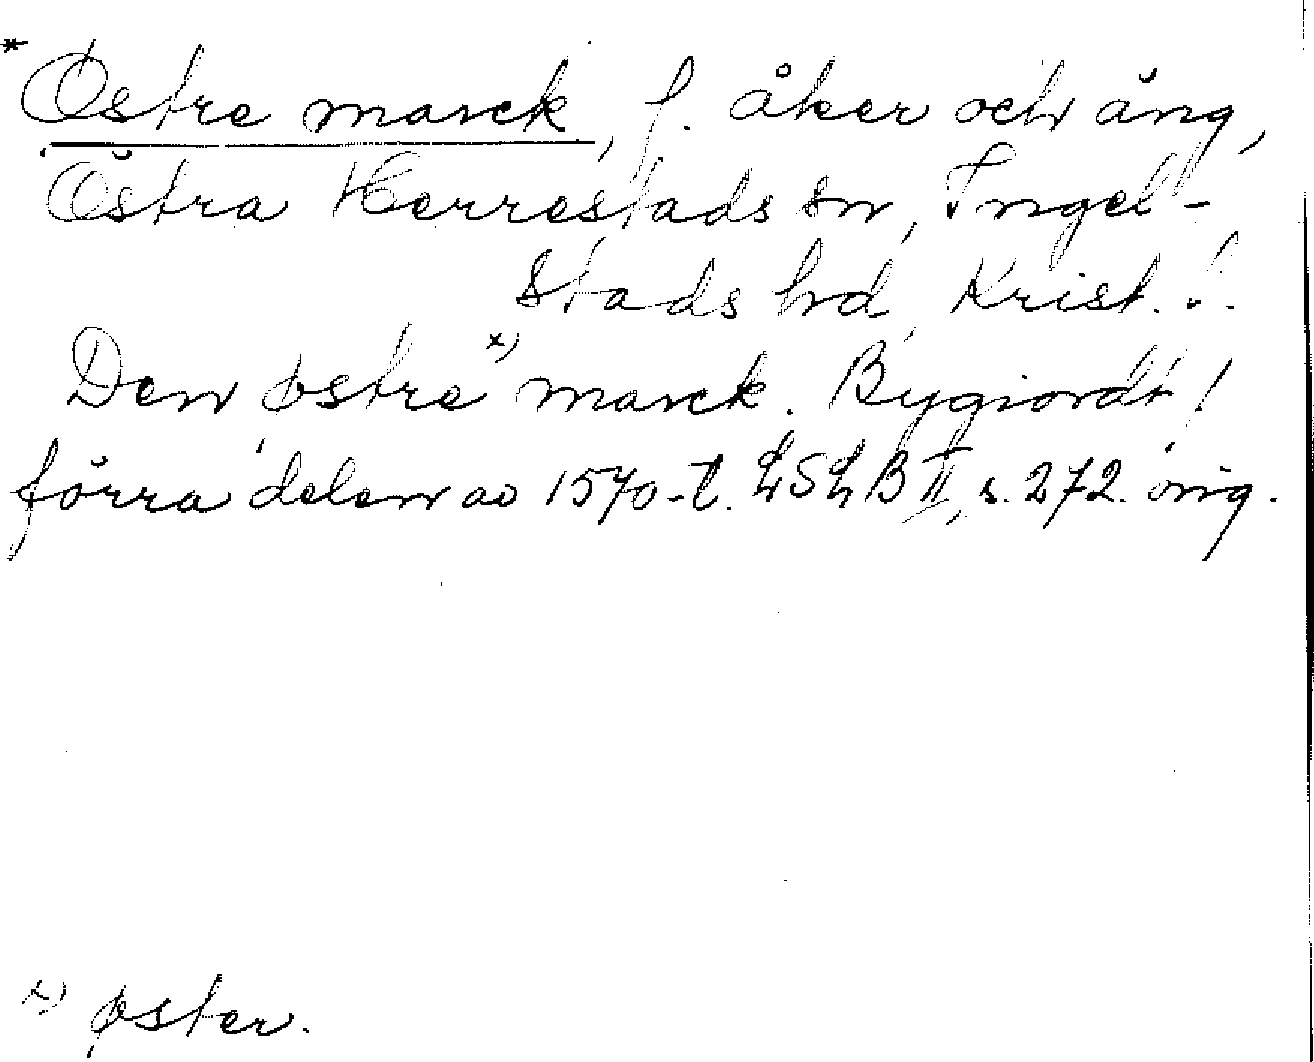 * Östre marck, f. åker och äng,
Östra Herrestads sn, Ingel-
stads hd, Krist. l.
Den østre x) marck. Bygiordt!
förra delen av 1570-t. LSLB II, s. 272. orig.
x) øster.